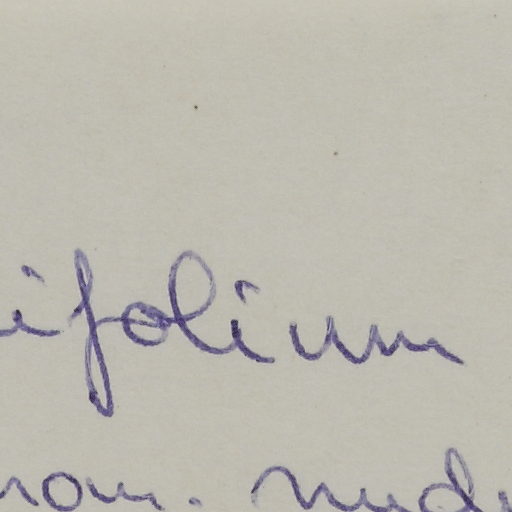 ifolium
nom. nud